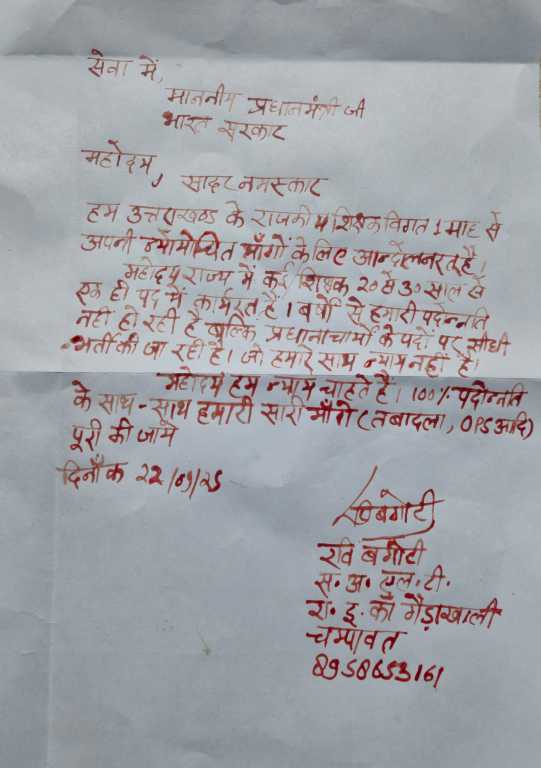 सेवा में,
माननीय प्रधानमंत्री जी
भारत सरकार
महोदय,
सादर नमस्कार
हम उत्तराखण्ड के राजकीय शिक्षक विगत 1 माह से
अपनी न्यायोचित माँगों के लिए आन्दोलनरत है।
महोदय राज्य में कई शिक्षक 20 से 30 साल से
एक ही पद में कार्यरत है। बर्षो से हमारी पदोन्नति
नहीं हो रही है बल्कि प्रधानाचार्यो के पदों पर सीधी
भर्ती की जा रही है। जो हमारे साथ न्याय नहीं है।
महोदय हम न्याय चाहते हैं। 100% पदोन्नति
के साथ-साथ हमारी सारी माँगे (तबादला, OPS आदि)
पूरी की जाये
दिनाँक 22/09/25
रवि बगोटी
रवि बगोटी
स. अ. एल. टी.
रा. इ. काँ गैड़ाखाली
चम्पावत
8958653161